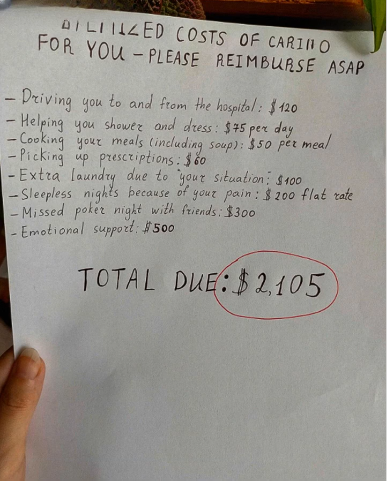 COSTS OF
FOR YOU – PLEASE REIMBURSE ASAP
– Driving you to and from the hospital: $120
– Helping you shower and dress: $75 per day
– Cooking your meals (including soup): $50 per meal
– Picking up prescriptions: $60
– Extra laundry due to "your situation: $100
– Sleepless nights because of your pain: $200 flat rate
– Missed poker night with friends: $300
– Emotional support: $500
TOTAL DUE: $2,105